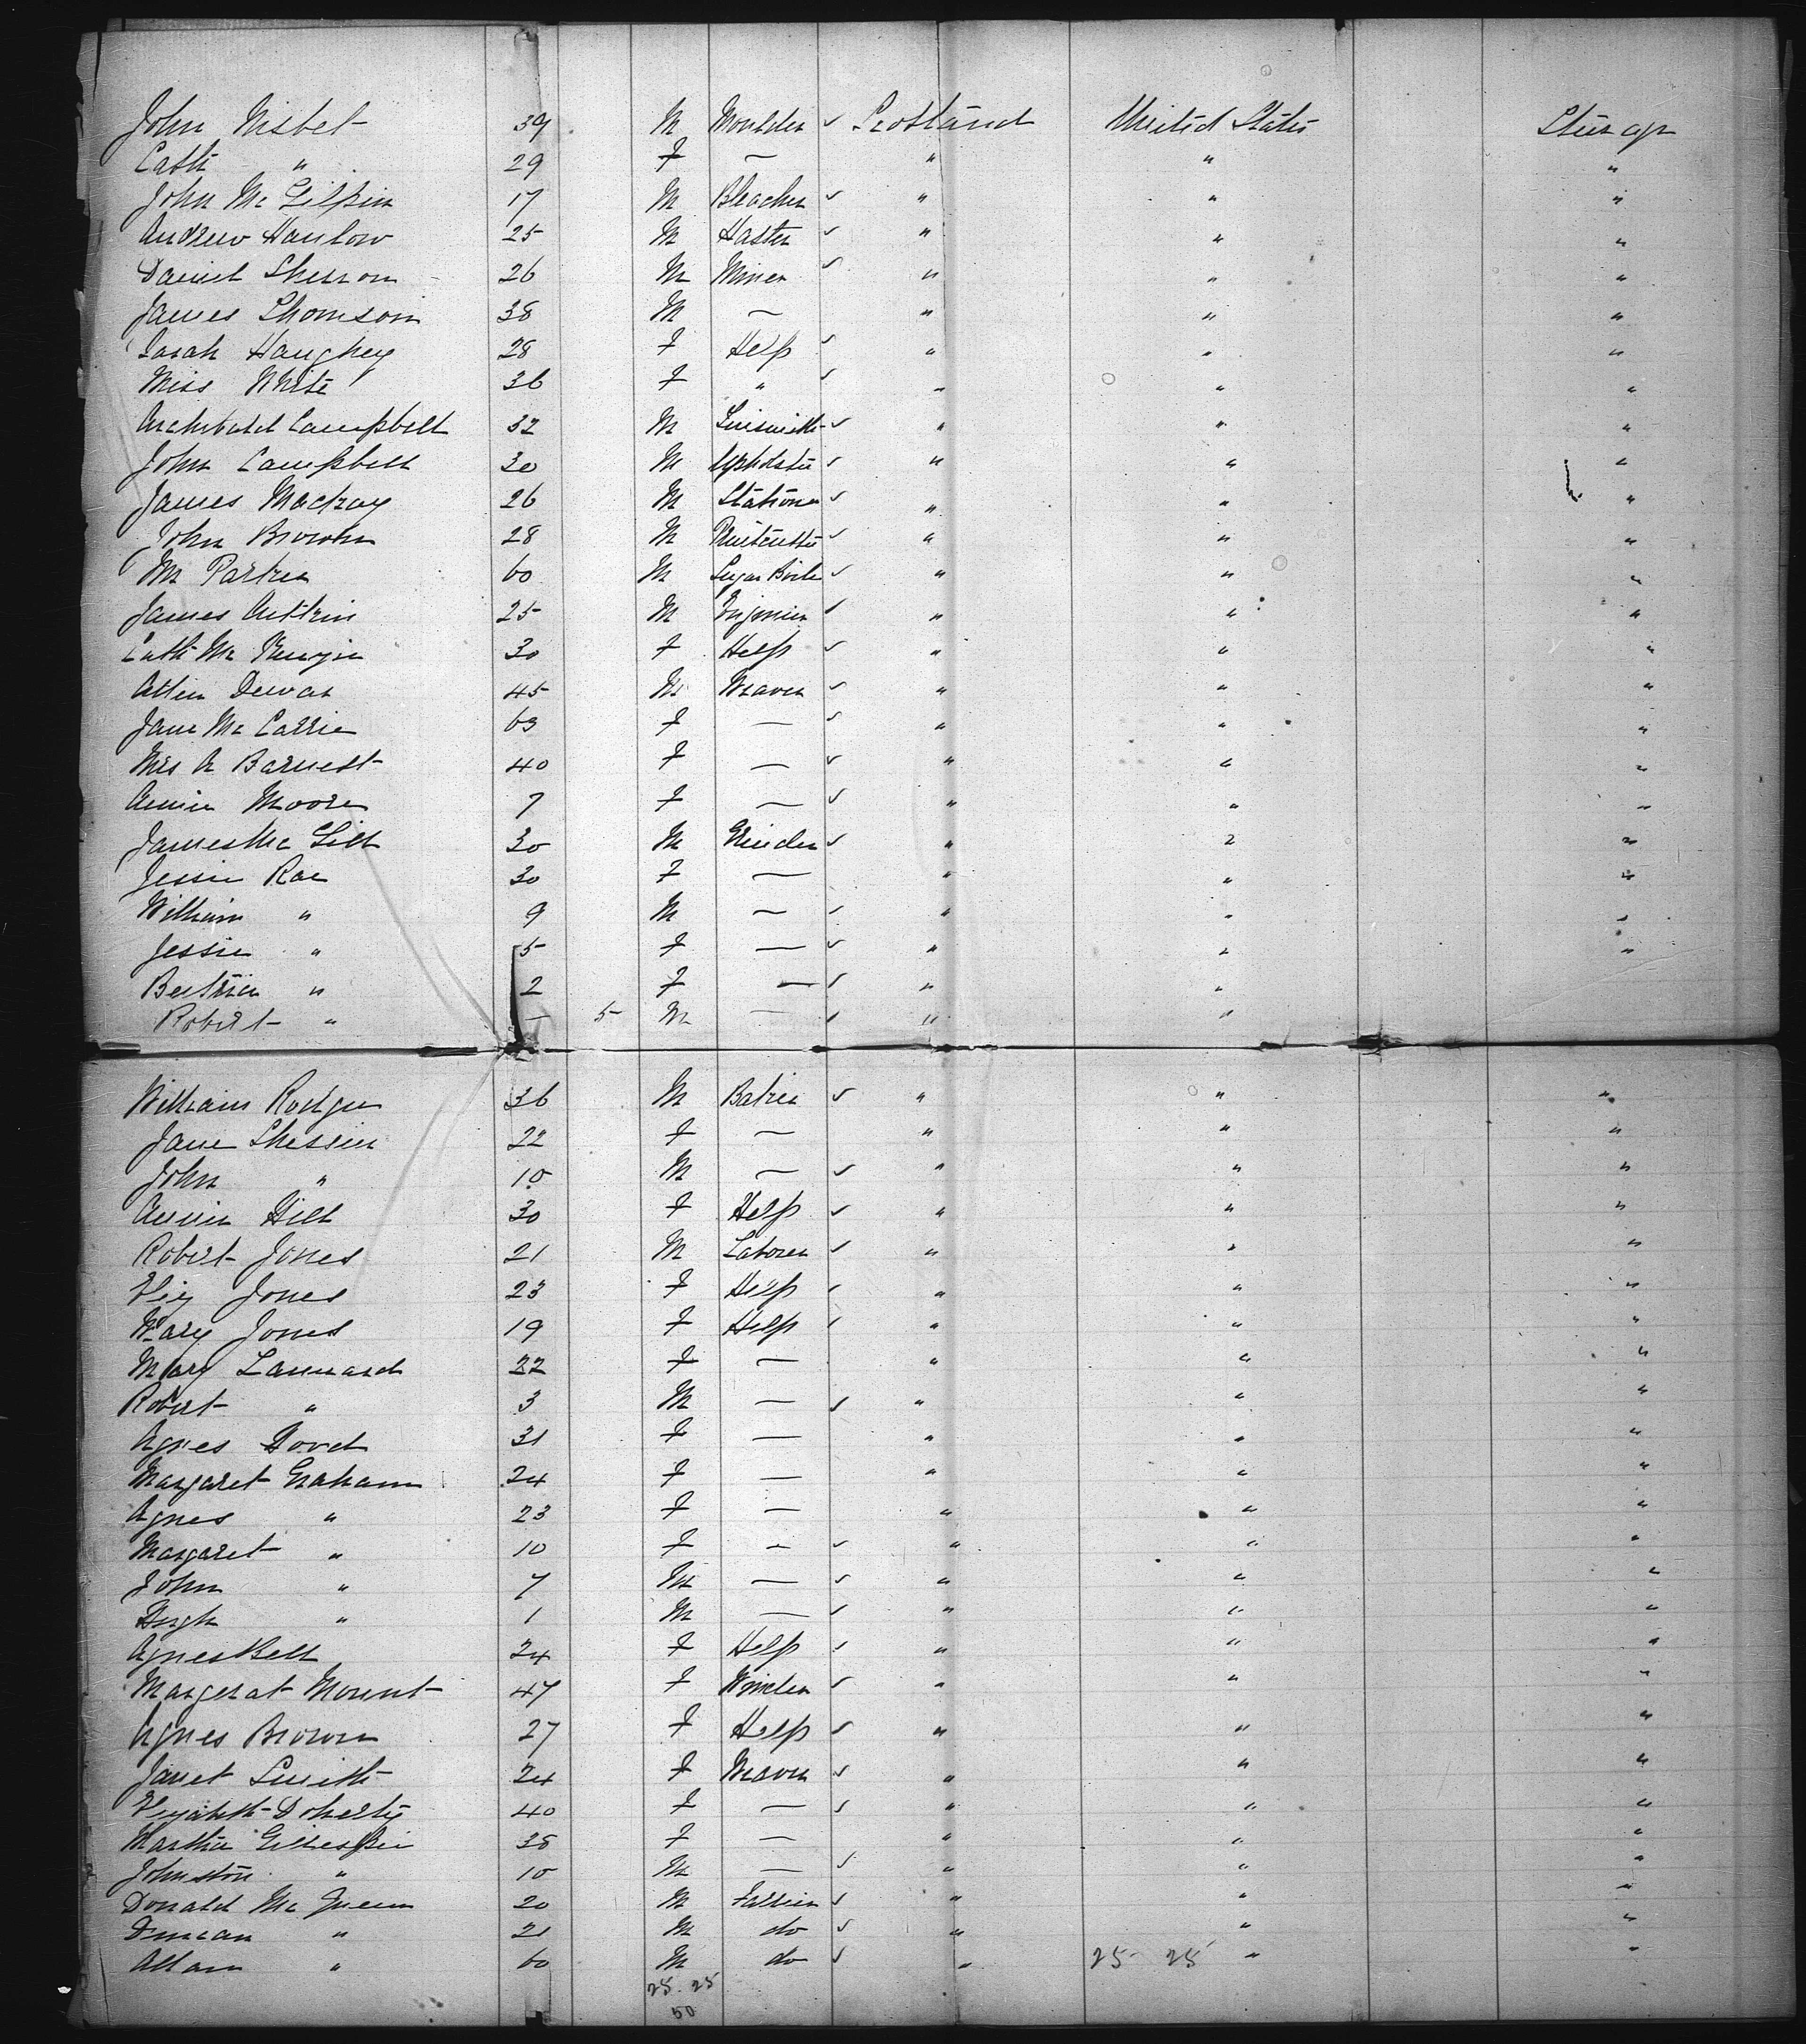 John Nisbet 39 M Moulder ✓ Scotland United States Steerage
Cath " 29 F — " " "
John Mc Gilpin 17 M Bleacher ✓ " " "
Andrew Hanlow 25 M Hatter ✓ " " "
Daniel 26 M Miner ✓ " " "
James Thomson 38 M — " " "
Sarah Haughey 28 F Help ✓ " " "
Miss White 36 F " ✓ " " "
Archibald Campbell 32 M Tinsmith ✓ " " "
John Campbell 30 M Upholster ✓ " " "
James Mackay 26 M Stationer ✓ " " "
John Brown 28 M Printcutter ✓ " " "
Mr Parker 60 M Sugar Boiler ✓ " " "
James 25 M Engineer ✓ " " "
Cath Mc Kenzie 30 F Help ✓ " " "
Allen Dewar 45 M Weaver ✓ " " "
Jane Mc Carrie 63 F — ✓ " " "
Mrs A Barnest 40 F — ✓ " " "
Annie Moore 7 F — ✓ " " "
James Mc Gill 30 M Grinder ✓ " " "
Jessie Rae 30 F — " " "
William " 9 M — ✓ " " "
Jessie " 5 F — ✓ " " "
Beatrice " 2 F — ✓ " " "
Robert " — 5 M — ✓ " "
William Rodger 36 M Baker ✓ " " "
Jane 22 F — " " "
John " 10 M — ✓ " " "
Annie Hill 30 F Help ✓ " " "
Robert Jones 21 M Laborer ✓ " " "
Jones 23 F Help ✓ " " "
Mary Jones 19 F Help ✓ " " "
Mary Lannard 22 F — " " "
Robert " 3 M — ✓ " " "
Agnes Dovd 31 F — " " "
Margaret Graham 24 F — " " "
Agnes " 23 F — " " "
Margaret " 10 F — ✓ " " "
John " 7 M — ✓ " " "
Hugh " 1 M — ✓ " " "
Agnes Bell 24 F Help ✓ " " "
Margerat Mount 47 F Winder ✓ " " "
Agnes Brown 27 F Help ✓ " " "
Janet Smith 24 F Weaver ✓ " " "
Elizabeth Doherty 40 F — ✓ " " "
Martha Gillespie 35 F — " " "
Johnston " 10 M — ✓ " " "
Donald Mc Queen 20 M ✓ " " "
Duncan " 21 M do ✓ " " "
Allan " 60 M do ✓ " 25 25 " "
25 25
50